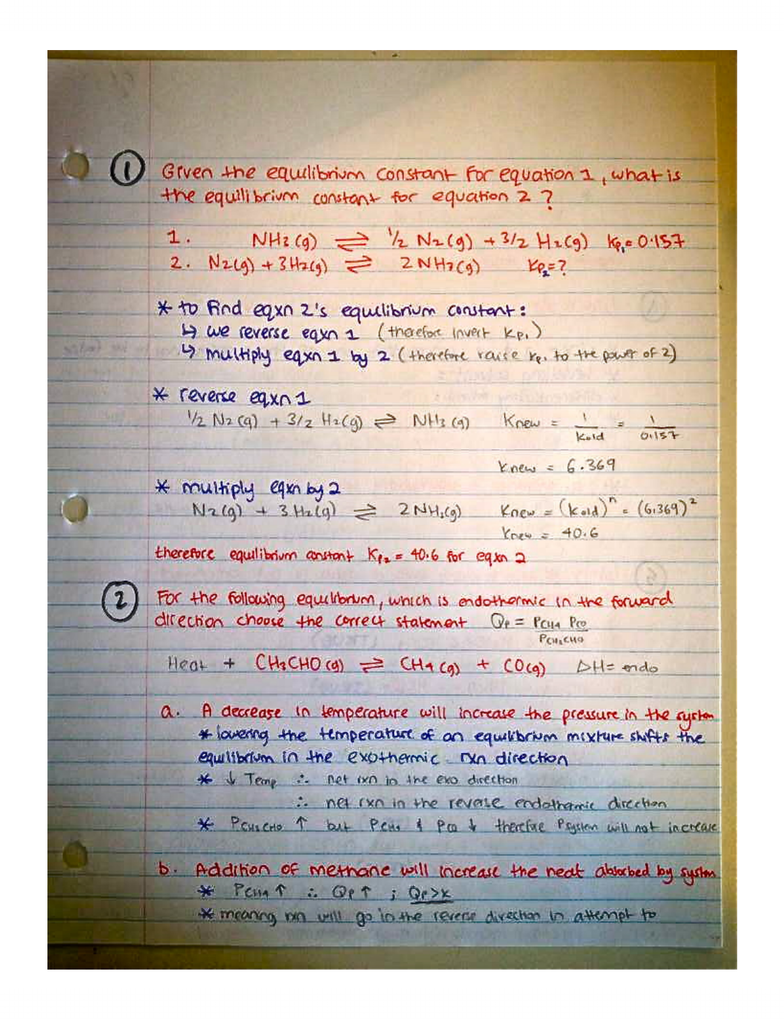 1 Given the equilibrium constant for equation 1, what is
the equilibrium constant for equation 2?
1. NH3 (g) ⇌ 1/2 N2 (g) + 3/2 H2 (g) Kp1 = 0.157
2. N2(g) + 3H2(g) ⇌ 2NH3(g) Kp2 = ?
* to find eqxn 2's equilibrium constant:
↳ we reverse eqxn 1 (therefore invert Kp1)
↳ multiply eqxn 1 by 2 (therefore raise Kp1 to the power of 2)
* reverse eqxn 1
1/2 N2 (g) + 3/2 H2(g) ⇌ NH3 (g) Knew = 1/Kold = 1/0.157
Knew = 6.369
* multiply eqxn by 2
N2(g) + 3 H2(g) ⇌ 2NH3(g) Knew = (Kold)^n = (6.369)^2
Knew = 40.6
therefore equilibrium constant Kp2 = 40.6 for eqxn 2
2 For the following equilibrium, which is endothermic in the forward
direction choose the correct statement Qp = PCH4 PCO / PCH3CHO
Heat + CH3CHO (g) ⇌ CH4 (g) + CO(g) ΔH = endo
a. A decrease in temperature will increase the pressure in the system
* lowering the temperature of an equilibrium mixture shifts the
equilibrium in the exothermic rxn direction
* ↓ Temp ∴ net rxn in the exo direction
∴ net rxn in the reverse endothermic direction
* PCH3CHO ↑ but PCH4 & PCO ↓ therefore Psystem will not increase
b. Addition of methane will increase the heat absorbed by system
* PCH4 ↑ ∴ Qp ↑ ; Qp>K
* meaning rxn will go in the reverse direction in attempt to